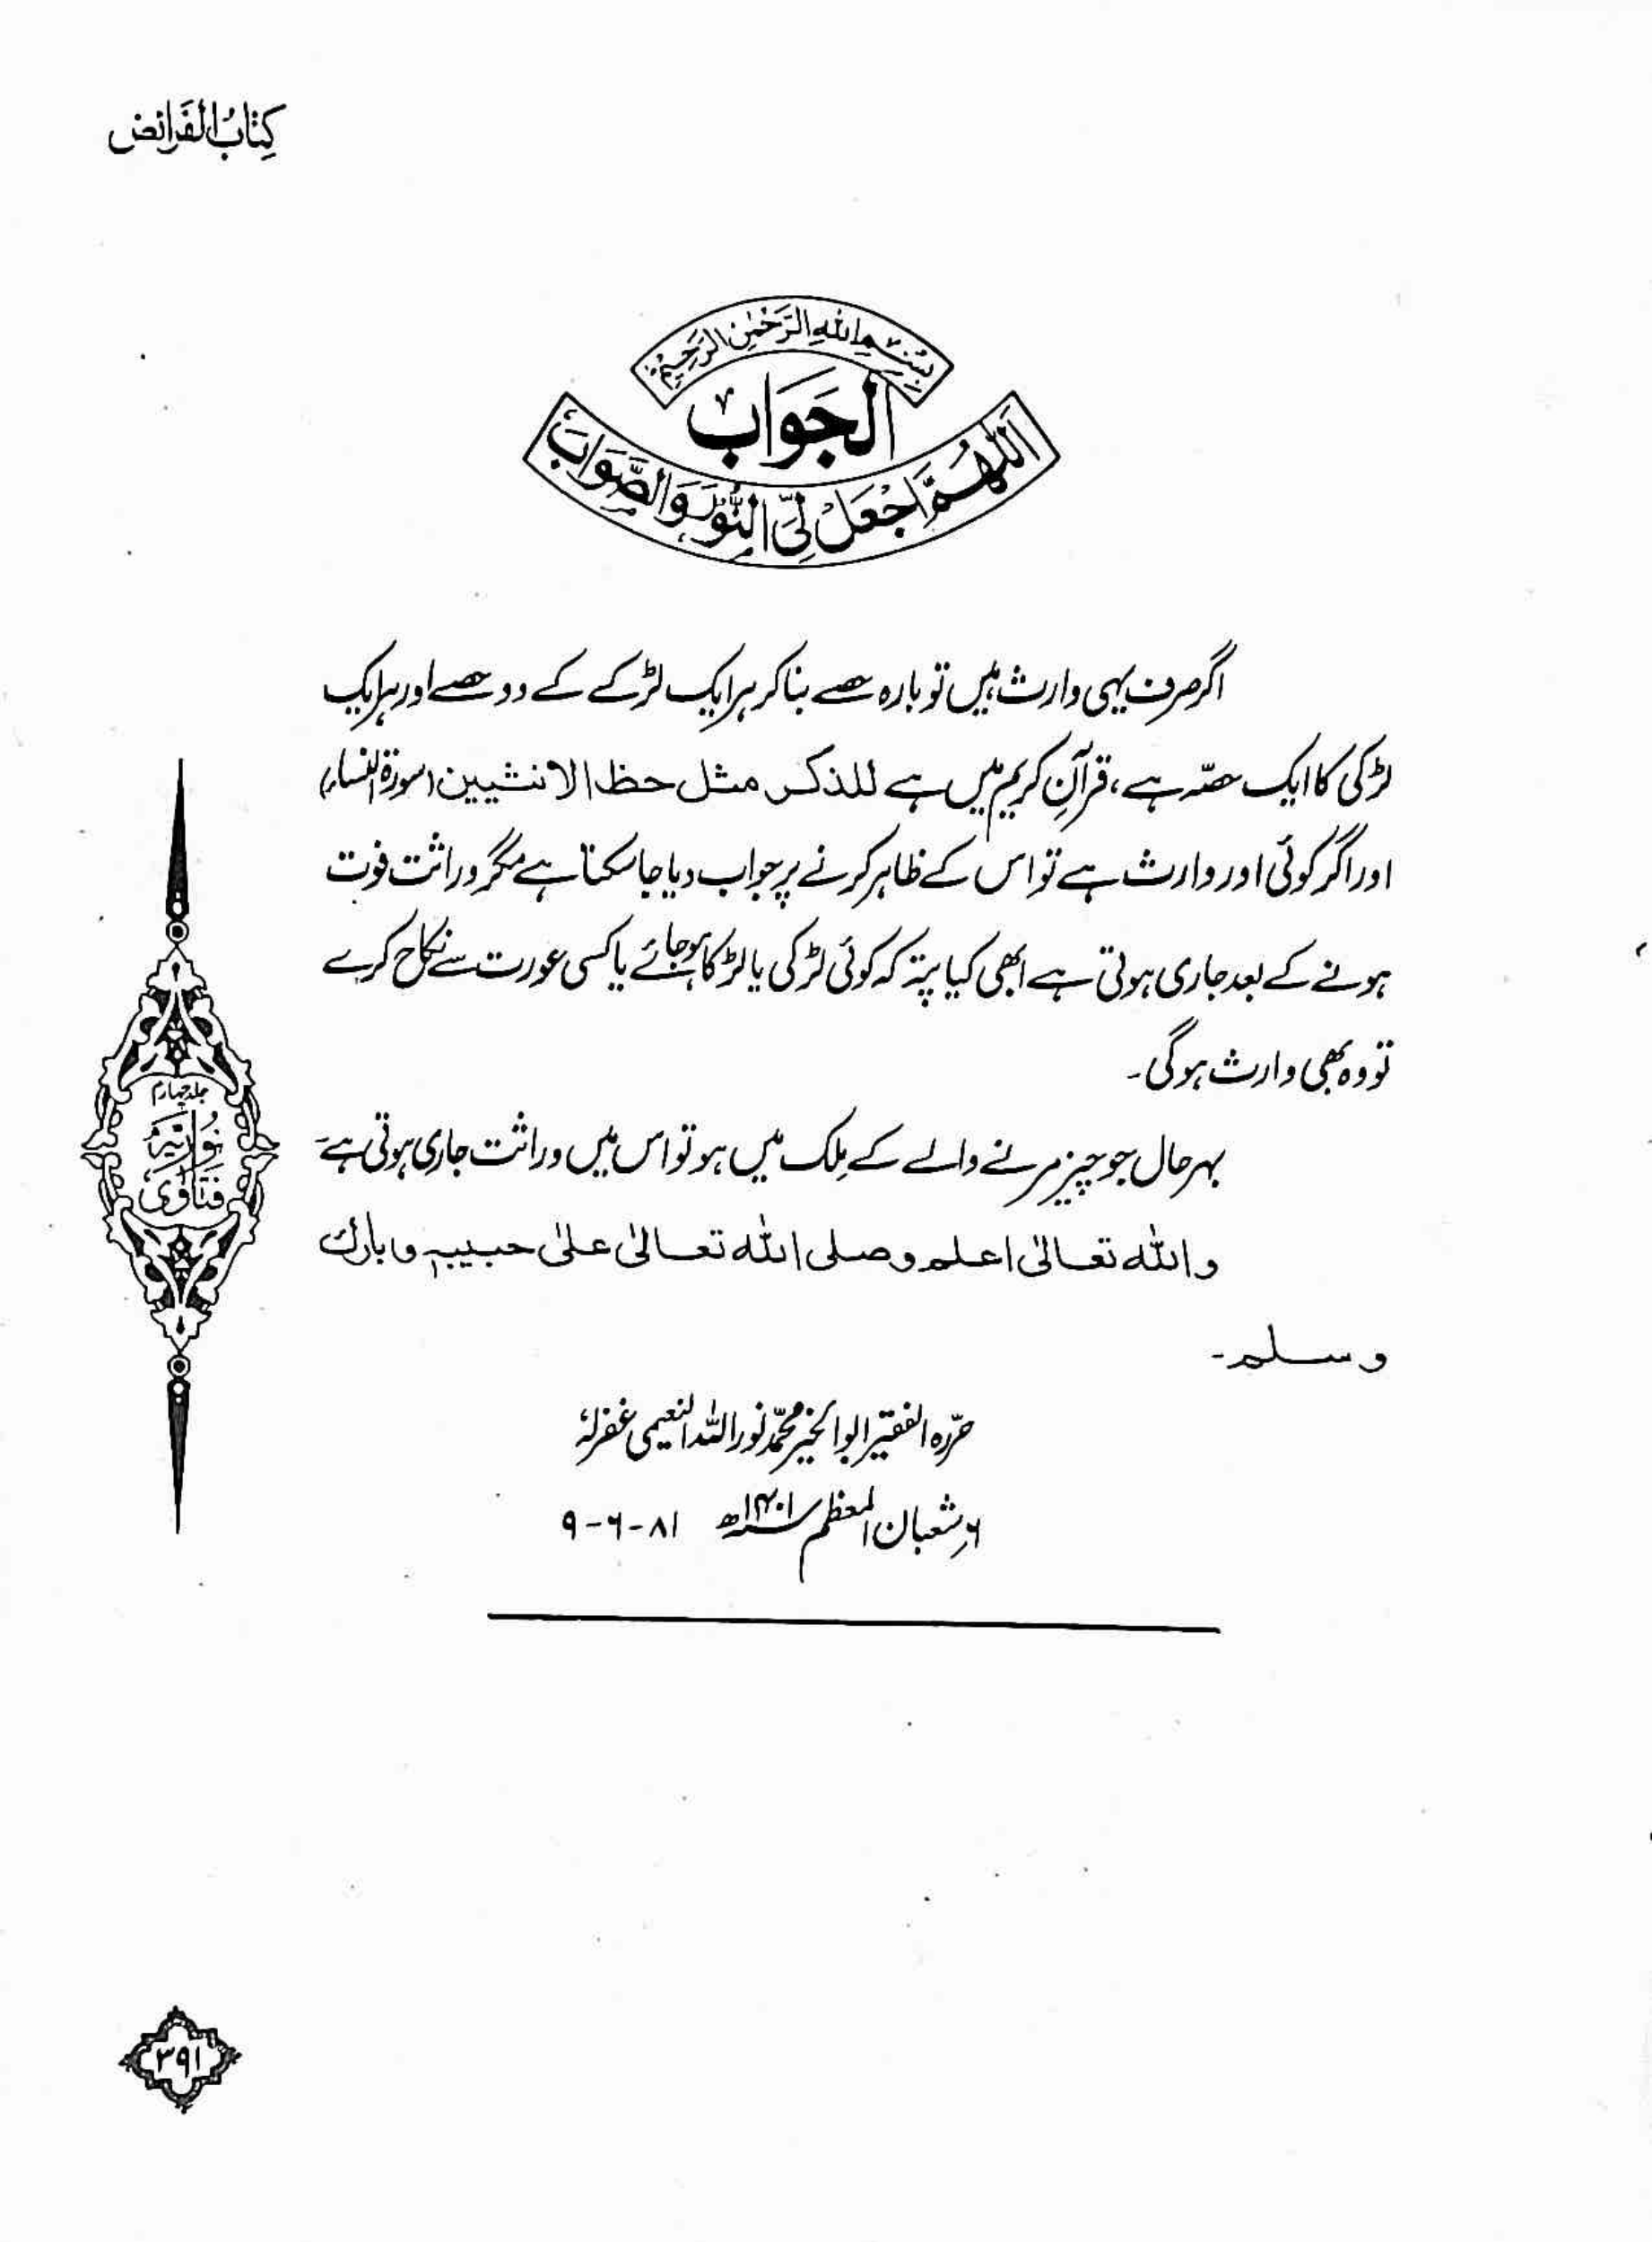 کِتَابُ الْفَرَائِض
بِسْمِ اللهِ الرَّحْمٰنِ الرَّحِيْمِ
الْجَوَابُ
اَللّٰهُمَّ اجْعَلْ لِّىَ النُّوْرَ وَالصَّوَابَ
اگر صرف یہی وارث ہیں تو بارہ حصے بنا کر ہر ایک لڑکے کے دو حصے اور ہر ایک
لڑکی کا ایک حصّہ ہے، قرآنِ کریم میں ہے للذکر مثل حظ الانثیین (سورۃ النساء)
اور اگر کوئی اور وارث ہے تو اس کے ظاہر کرنے پر جواب دیا جا سکتا ہے مگر وراثت فوت
ہونے کے بعد جاری ہوتی ہے ابھی کیا پتہ کہ کوئی لڑکی یا لڑکا ہو جائے یا کسی عورت سے نکاح کرے
تو وہ بھی وارث ہو گی۔
بہر حال جو چیز مرنے والے کے مِلک میں ہو تو اس میں وراثت جاری ہوتی ہے
واللّٰہ تعالیٰ اعلم وصلی اللّٰہ تعالیٰ علیٰ حبیبہٖ وبارک
وسلم۔
حرّرہ الفقیر ابو الخیر محمّد نور اللہ النعیمی غفرلہٗ
۶ر شعبان المعظم سنہ ۱۴۰۱ھ ۸۱-۶-۹
جلد چہارم
نُوْرِیَّہ
فَتَاوٰی
۳۹۱